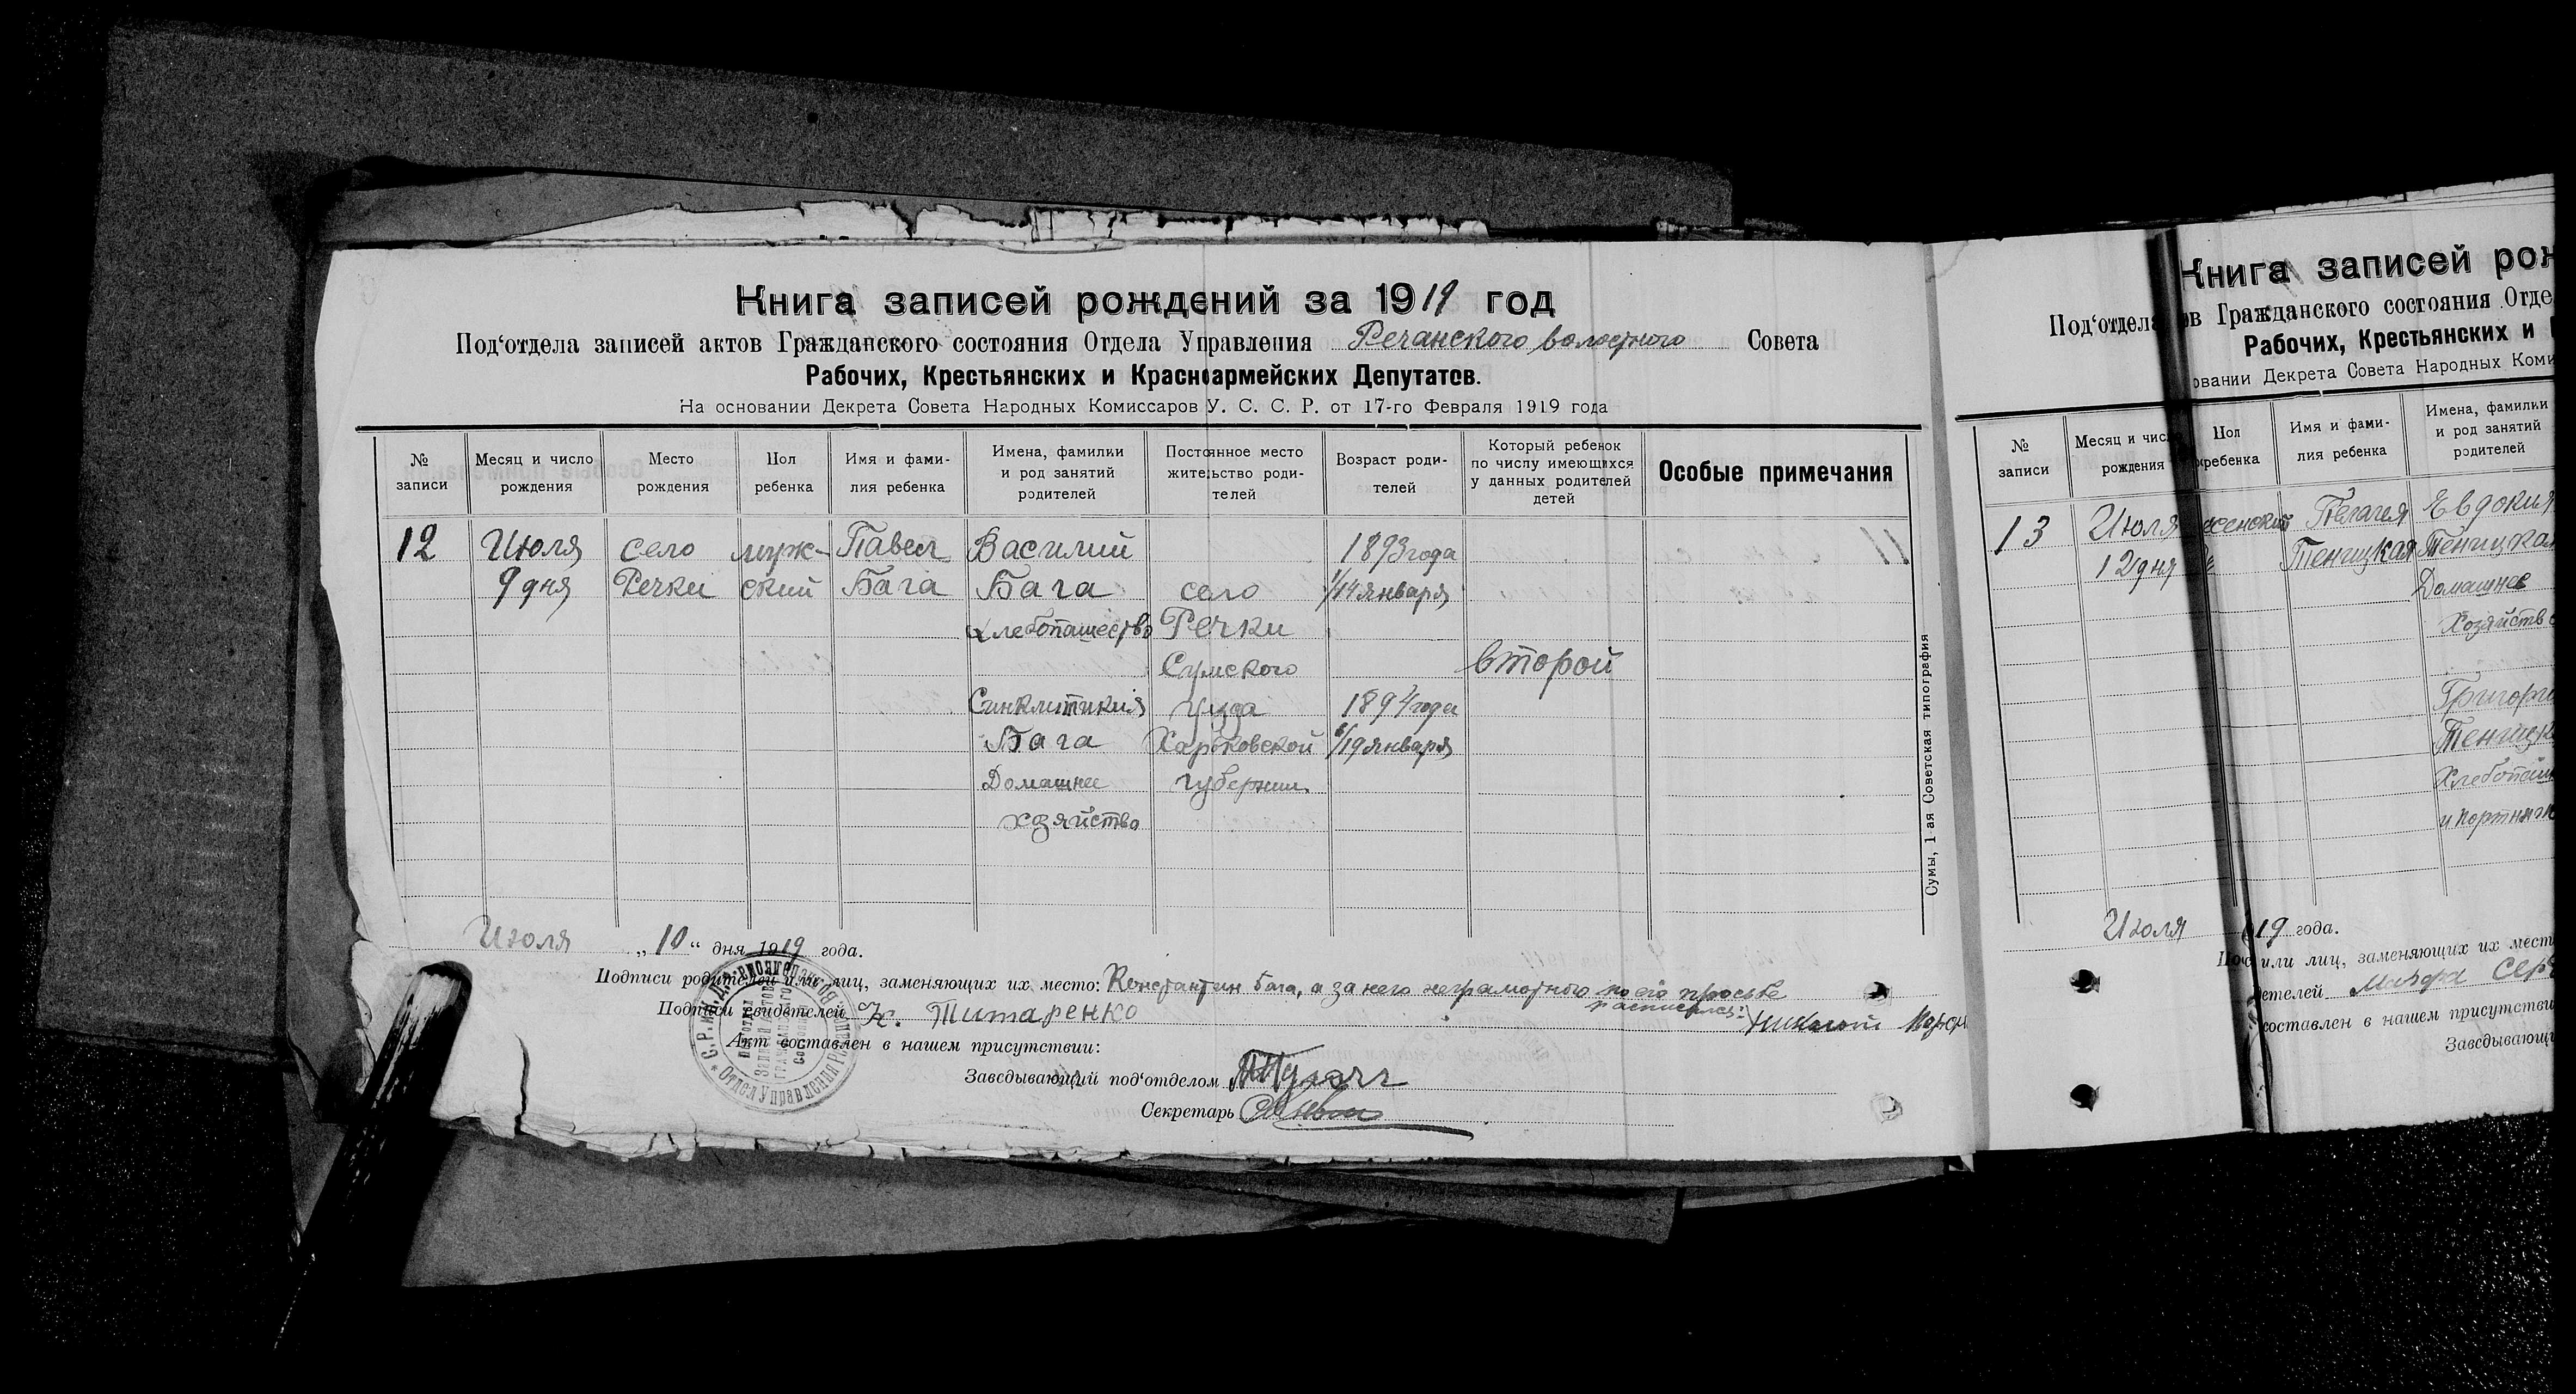 Книга записей рождений за 1919 год
Под‘отдела записей актов Гражданского состояния Отдела Управления Речанского волостного Совета
Рабочих, Крестьянских и Красноармейских Депутатов.
На основании Декрета Совета Народных Комиссаров У. С. С. Р. от 17-го Февраля 1919 года
№ записи
Месяц и число рождения
Место рождения
Пол ребенка
Имя и фами-
лия ребенка
Имена, фамилии
и род занятий
родителей
Постоянное место
жительство роди-
телей
Возраст роди-
телей
Который ребенок
по числу имеющихся
у данных родителей
детей
Особые примечания
12 Июля село муж- Павел Василий 1893 года
9 дня Речки ский Бага Бага село 1/14 января
хлебопашество Речки
Сумского второй
Синклитикия уезда 1894 года
Бага Харьковской 6/19 января
Домашнее губернии
хозяйство
Июля „10“ дня 1919 года.
Подписи родителей или лиц, заменяющих их место: Константин Бага, а за него неграмотного по его просьбе
расписался: Николай
Подписи свидетелей К. Титаренко
Акт составлен в нашем присутствии:
Заведывающий под‘отделом
Секретарь
Сумы, 1-ая Советская типография
Отдел Управления
Книга записей рож
Под‘отдела ов Гражданского состояния Отде
Рабочих, Крестьянских и
овании Декрета Совета Народных Коми
№ записи
Месяц и число
рождения
Пол
ребенка
Имя и фами-
лия ребенка
Имена, фамилии
и род занятий
родителей
13 Июля женский Пелагея Евдокия
12 дня Теницкая Теницкая
Домашнее
Хозяйство
Григорий
Теницк
Хлебопаш
и портняж
Июля 19 года.
или лиц, заменяющих их мест
детелей
составлен в нашем присутствии
Заведывающи